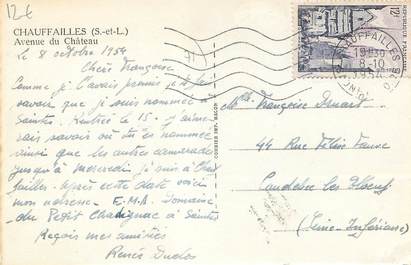 12€
CHAUFFAILLES (S.-et-L.)
Avenue du Château
le 8 octobre 1954
Chère Françoise
Comme je t'avais promis je te fais
savoir que je suis nommée à
Saintes. Rentrée le 15. J'aime-
rais savoir où tu es nommée
ainsi que les autres camarades
jusqu'à mercredi je suis à Chauf-
failles. Après cette date voici
mon adresse - E.M.A. Domaine
du Petit Chadignac à Saintes
Reçois mes amitiés
Renée Duclos
COMBIER IMP. MACON
12F
CHAUFFAILLES
19H30
8-10
1954
Mlle Françoise
44 Rue Félix Faure
Caudebec les Elbeuf
(Seine-Inférieure)